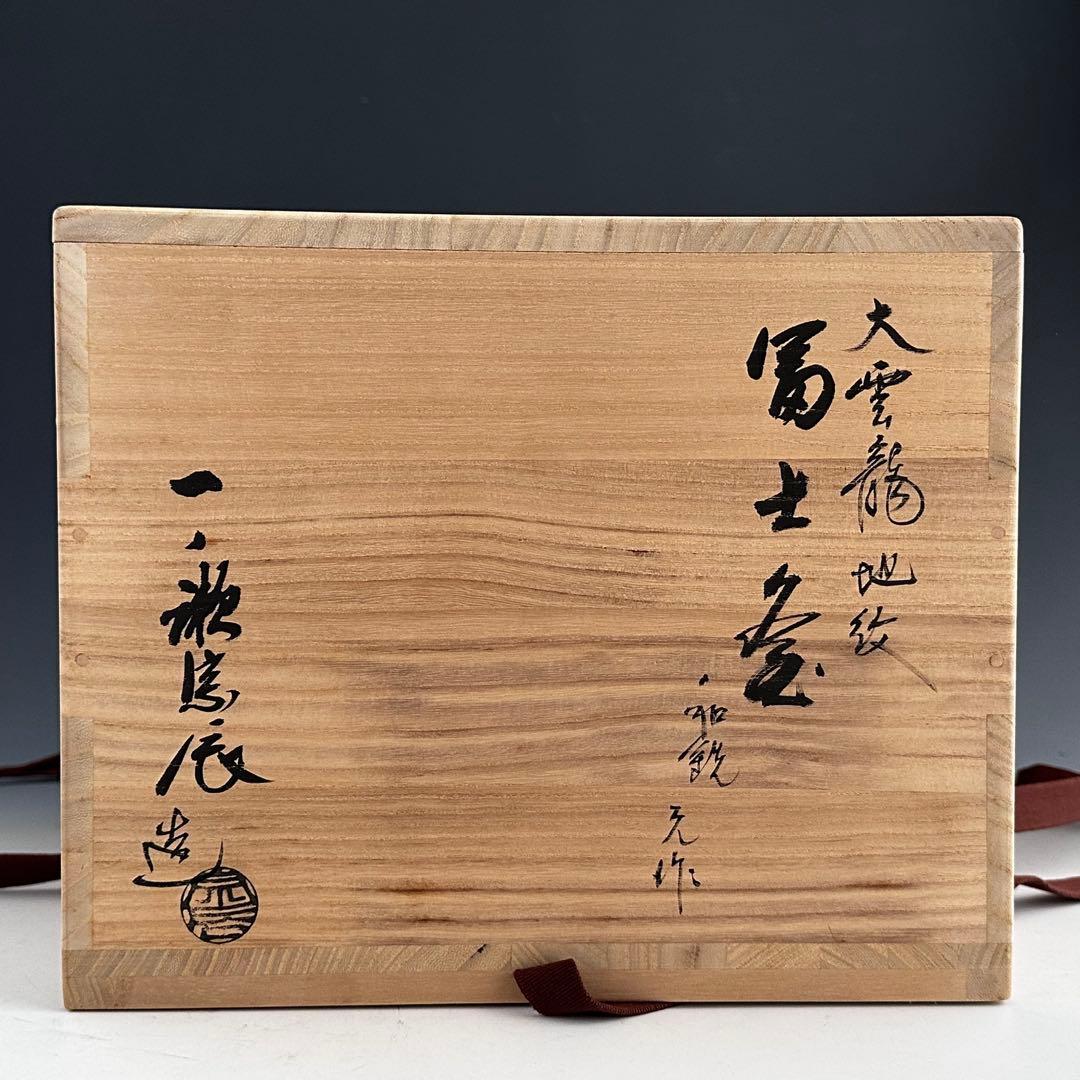 大雲龍地紋
富士釜
和銑
元作
一ノ瀬宗辰
造